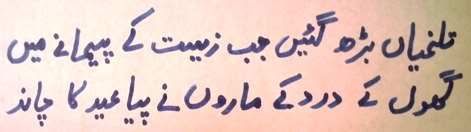 تلخیاں بڑھ گئیں جب زیست کے پیمانے میں
گھول کے درد کے ماروں نے پیا عید کا چاند